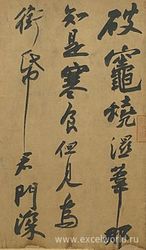 破竈燒濕葦那
知是寒食但見烏
銜帋君門深
www.excelworld.ru